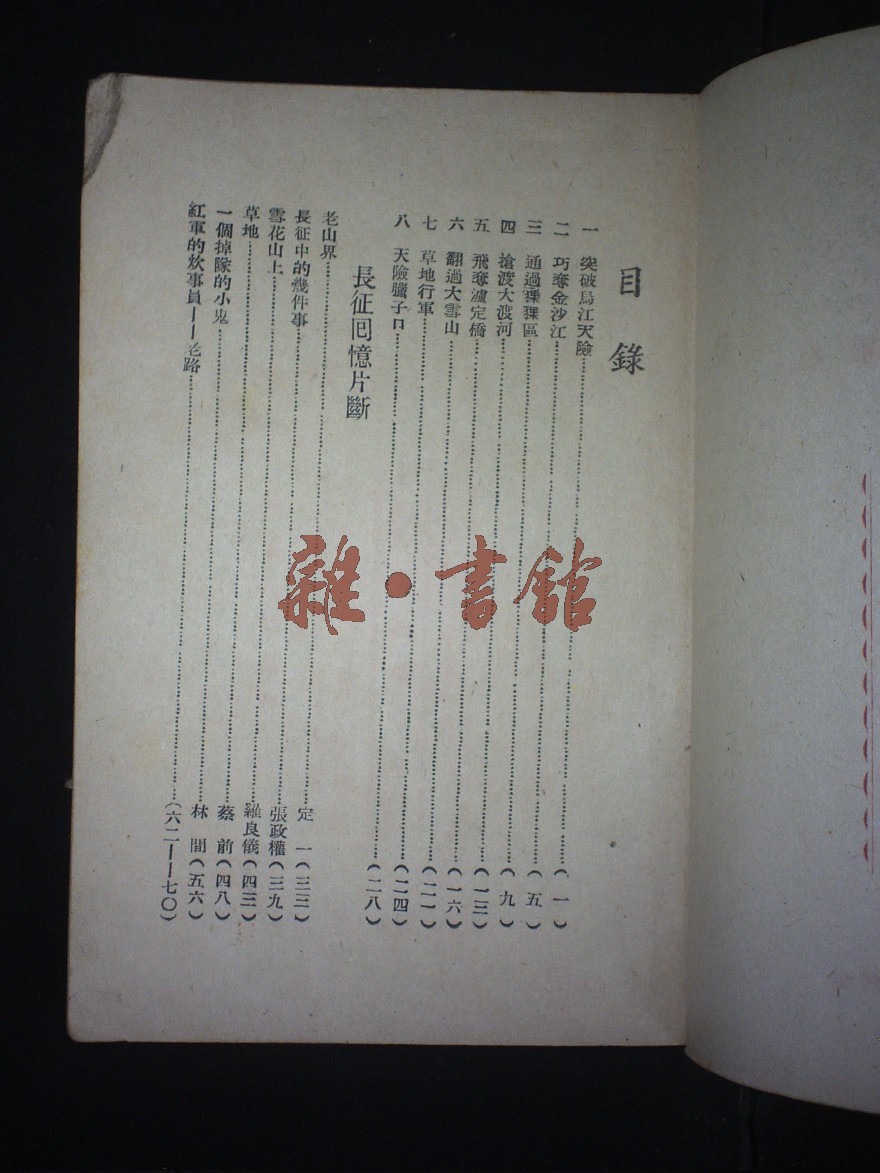 目錄
一 突破烏江天險……(一)
二 巧奪金沙江……(五)
三 通過猓猓區……(九)
四 搶渡大渡河……(一三)
五 飛奪瀘定橋……(一六)
六 翻過大雪山……(二一)
七 草地行軍……(二四)
八 天險臘子口……(二八)
長征回憶片斷
老山界……定 一(三三)
長征中的幾件事……張政權(三九)
雪花山上……羅良儀(四三)
草地……蔡 前(四八)
一個掉隊的小鬼……林 間(五六)
紅軍的炊事員——老路……(六二——七〇)
雜·書館